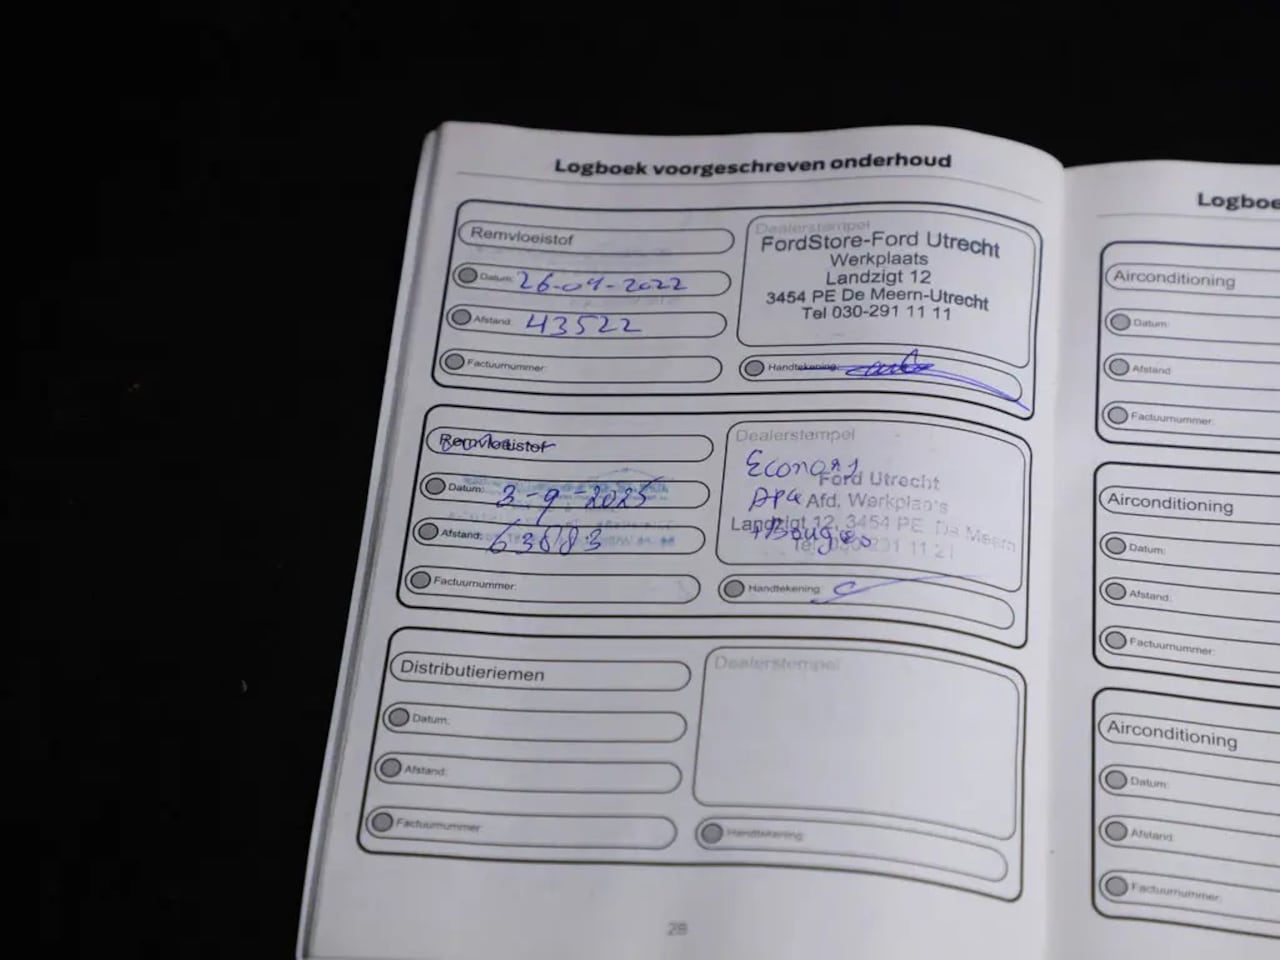 Logboek voorgeschreven onderhoud
Remvloeistof
Datum: 26-09-2022
Afstand: 43522
Factuurnummer:
Dealerstempel
FordStore-Ford Utrecht
Werkplaats
Landzigt 12
3454 PE De Meern-Utrecht
Tel 030-291 11 11
Handtekening:
Remvloeistof
Datum: 3-9-2025
Afstand:
Factuurnummer:
Dealerstempel
Ford Utrecht
APK Afd. Werkplaats
Landzigt 12, 3454 PE De Meern
+ Bougies
Handtekening:
Distributieriemen
Datum:
Afstand:
Factuurnummer
Dealerstempel
Handtekening:
28
Logboe
Airconditioning
Datum:
Afstand
Factuurnummer:
Airconditioning
Datum:
Afstand:
Factuurnummer:
Airconditioning
Datum:
Afstand:
Factuurnummer: